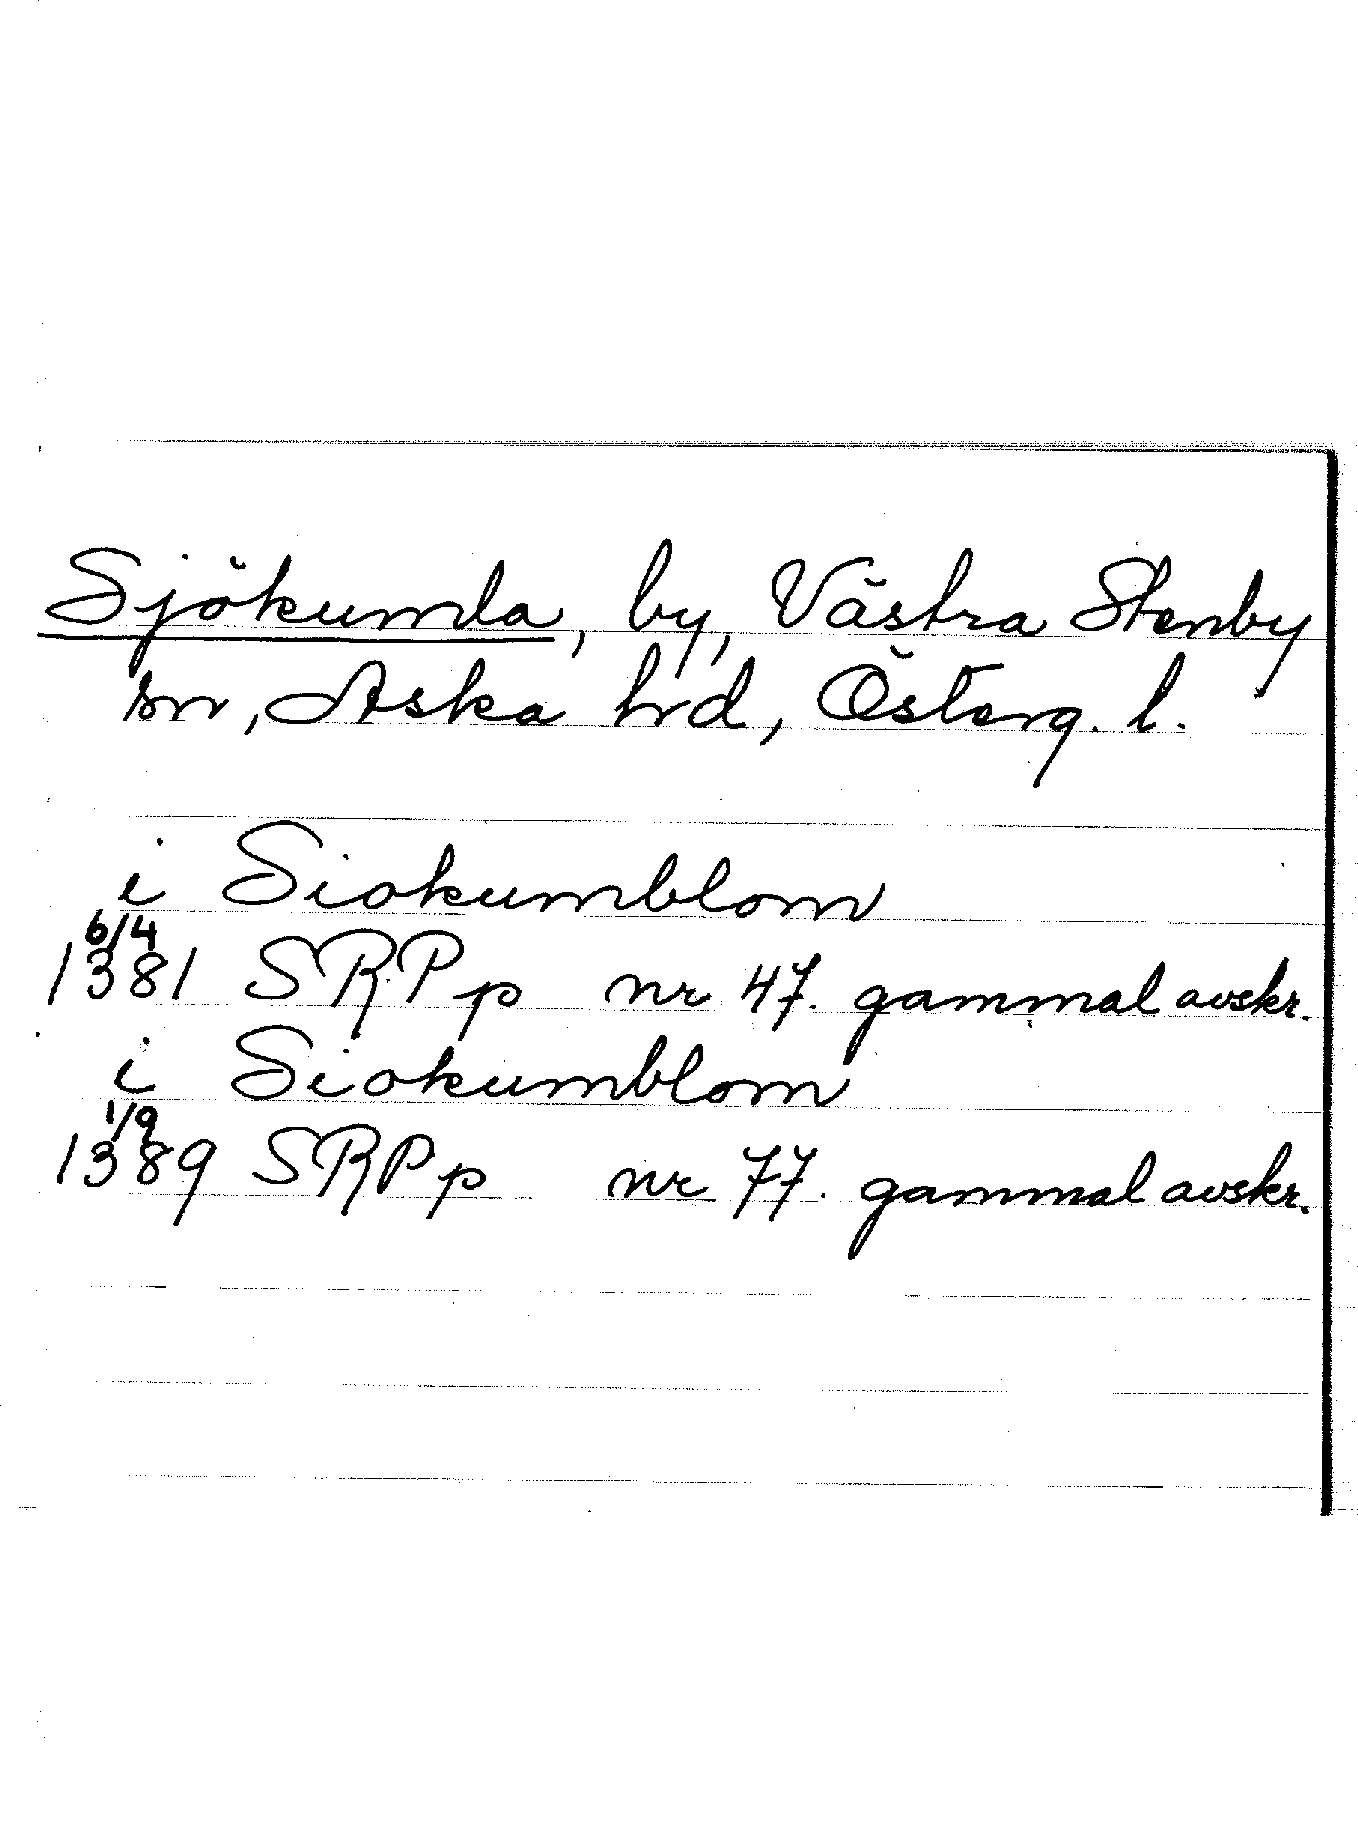 Sjökumla, by, Västra Stenby
sn, Aska hrd, Österg. l.
i Siokumblom
6/4
1381 SRPp nr 47. gammal avskr.
i Siokumblom
1/9
1389 SRPp nr 77. gammal avskr.